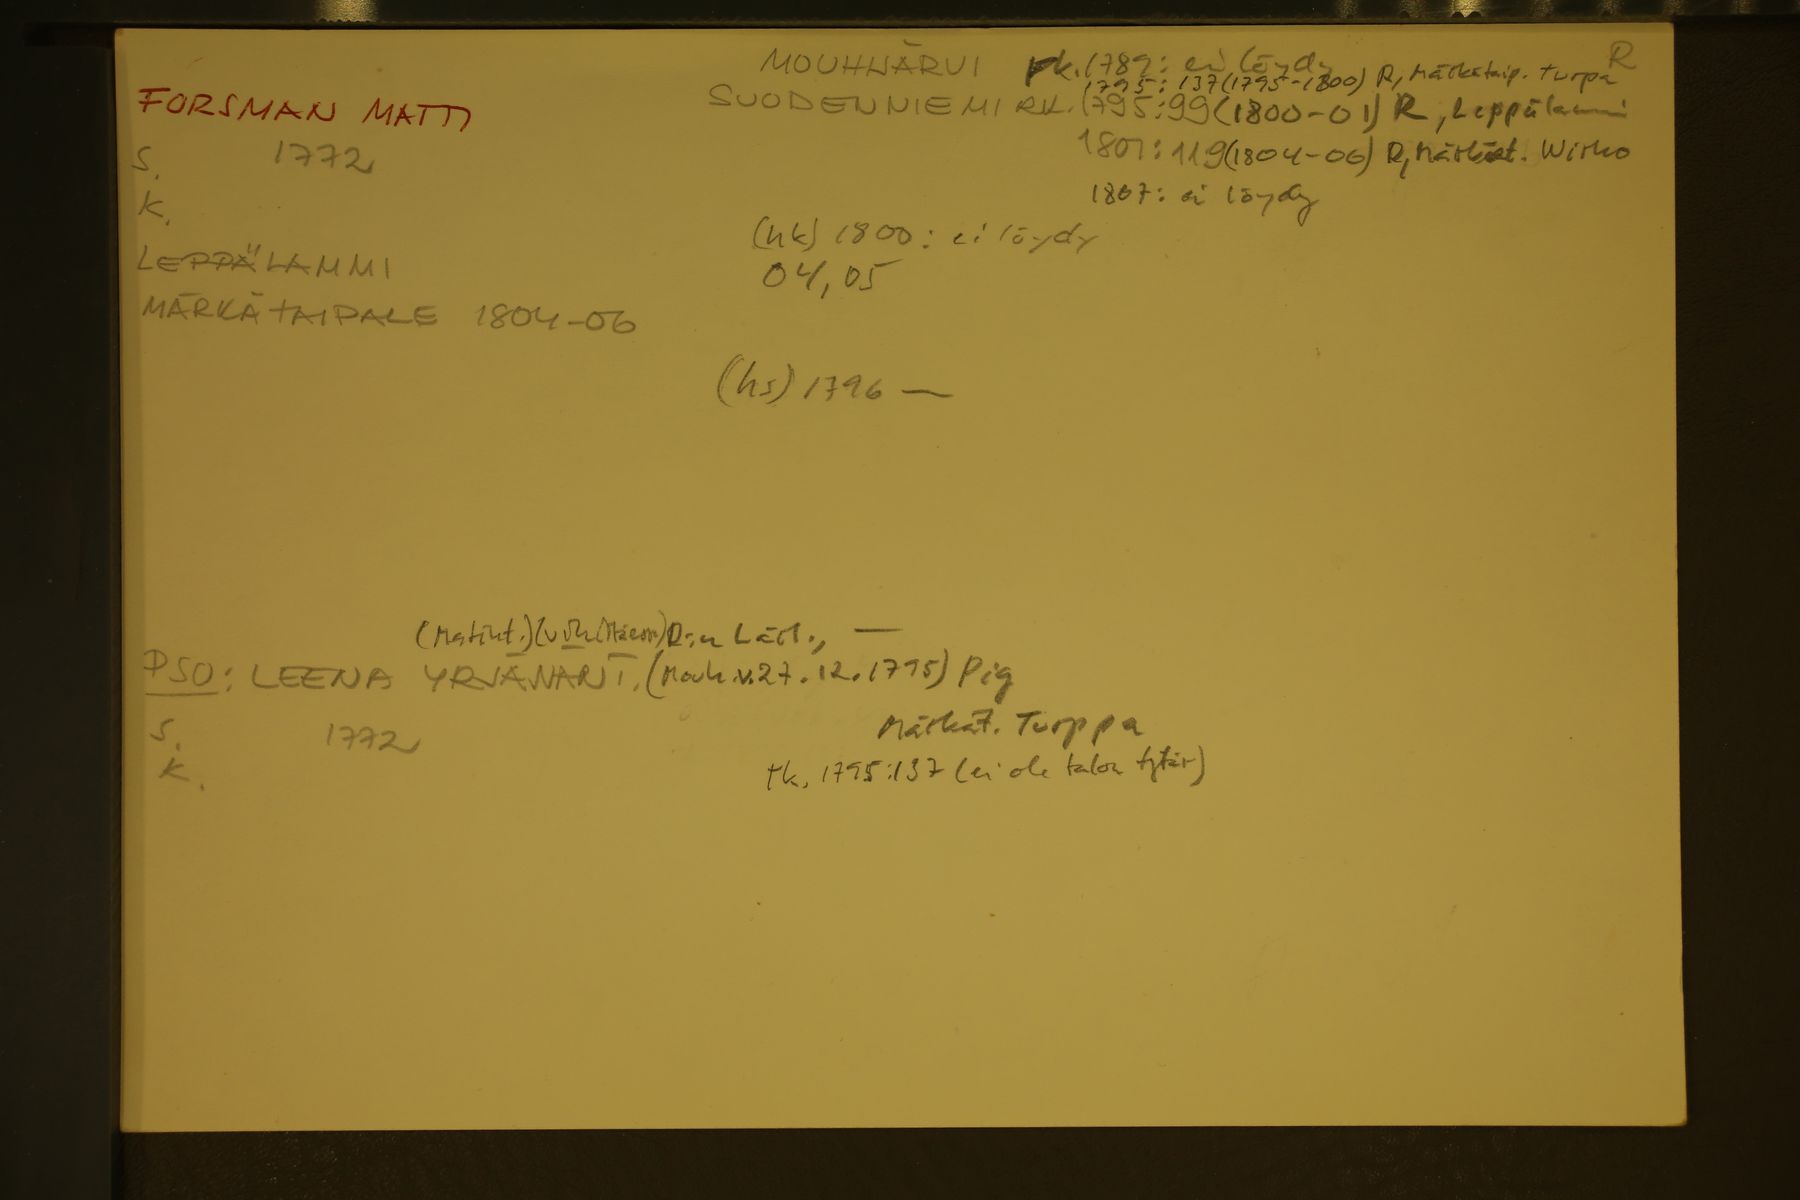 MOUHIJÄRVI rk. 1789: ei löydy R
1795: 137 (1795-1800) R, Märkätaip. Turpa
FORSMAN MATTI
SUODENNIEMI RK. 1795: 99 (1800-01) R, Leppälammi
S. 1772
1801: 119 (1804-06) R, Märkät. Wirho
K.
1807: ei löydy
(hk) 1800: ei löydy
LEPPÄLAMMI
04, 05
MÄRKÄTAIPALE 1804-06
(hs) 1796 —
(Matint.) R:n Lesk., —
PSO: LEENA YRJÄNÄNT. (Mouh. v. 27.12.1795) Pig
S. 1772
Märkät. Turppa
K.
rk. 1795: 137 (ei ole talon tytär)